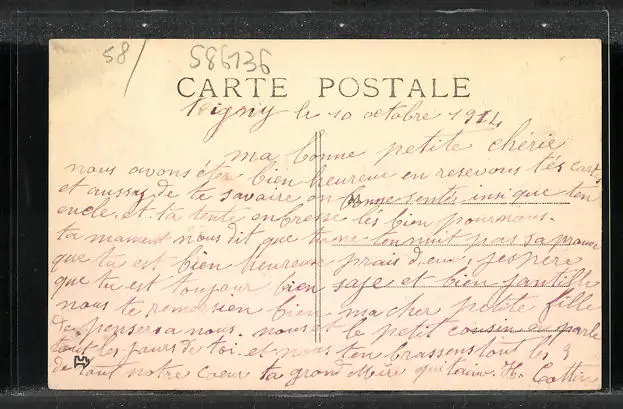 58/
586736
CARTE POSTALE
Teigny le 10 octobre 1914
ma bonne petite chérie
nous avons éter bien heureux en resevons tés carts
et aussy de te savoire en bonne senter insi que ton
oncle et ta tente enbresse lés bien pournous.
ta mament nous dit que tu ne tennuit pas sa prouve
que tu est bien heureuse prais d'eux, jespère
que tu est toujour bien saje et bien jantille
nous te remersien bien ma cher petite fille
de penser a nous. nous et le petit cousin on parle
tout les jours de toi. et nous ten brassons tout les 3
de tout notre coeur ta grand Mère qui taime. H. Cottin